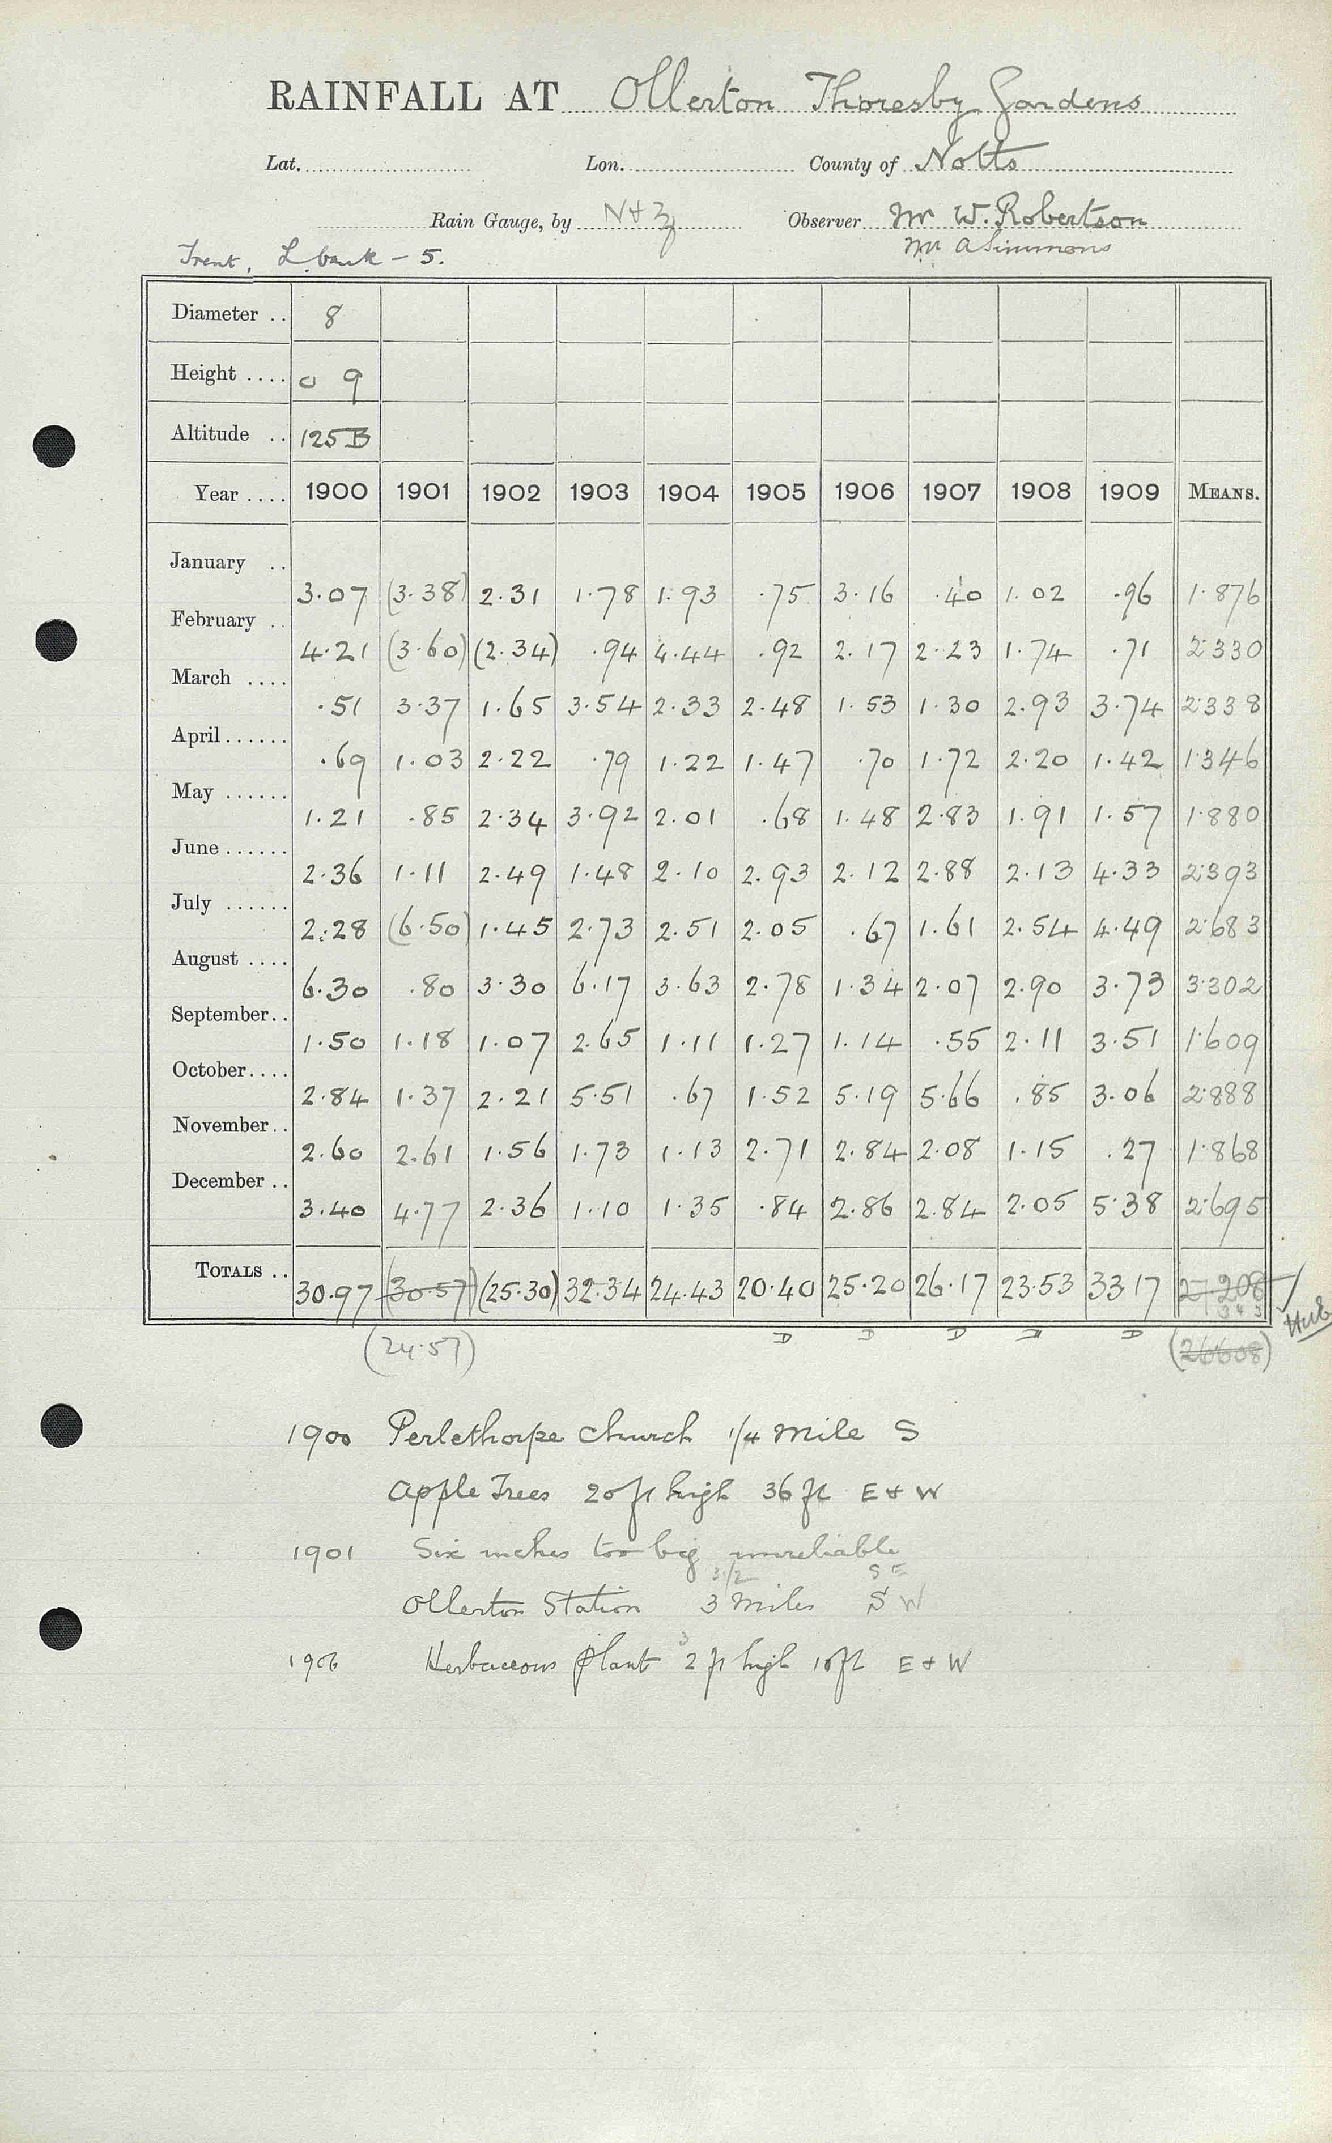 RAINFALL AT Ollerton Thoresby Gardens
Lat. Lon. County of Notts
Rain Gauge, by N & Z Observer Mr W. Robertson
Mr A Simmons
Trent, L bank - 5.
Diameter .. 8
Height .... 0 9
Altitude .. 125 B
Year .... 1900 1901 1902 1903 1904 1905 1906 1907 1908 1909 MEANS.
January .. 3.07 (3.38) 2.31 1.78 1.93 .75 3.16 .40 1.02 .96 1.876
February .. 4.21 (3.60) (2.34) .94 4.44 .92 2.17 2.23 1.74 .71 2.330
March .... .51 3.37 1.65 3.54 2.33 2.48 1.53 1.30 2.93 3.74 2.338
April ...... .69 1.03 2.22 .79 1.22 1.47 .70 1.72 2.20 1.42 1.346
May ...... 1.21 .85 2.34 3.92 2.01 .68 1.48 2.83 1.91 1.57 1.880
June ...... 2.36 1.11 2.49 1.48 2.10 2.93 2.12 2.88 2.13 4.33 2.393
July ...... 2.28 (6.50) 1.45 2.73 2.51 2.05 .67 1.61 2.54 4.49 2.683
August .... 6.30 .80 3.30 6.17 3.63 2.78 1.34 2.07 2.90 3.73 3.302
September.. 1.50 1.18 1.07 2.65 1.11 1.27 1.14 .55 2.11 3.51 1.609
October.... 2.84 1.37 2.21 5.51 .67 1.52 5.19 5.66 .85 3.06 2.888
November.. 2.60 2.61 1.56 1.73 1.13 2.71 2.84 2.08 1.15 .27 1.868
December .. 3.40 4.77 2.36 1.10 1.35 .84 2.86 2.84 2.05 5.38 2.695
TOTALS .. 30.97 (30.57) (25.30) 32.34 24.43 20.40 25.20 26.17 23.53 33.17 27.208
(24.57) D D D D D (26608)
1900 Perlethorpe Church 1/4 mile S
Apple Trees 20 ft high 36 ft E & W
1901 Six inches too big unreliable
3 1/2 S E
Ollerton Station 3 miles S W
3
1906 Herbaceous plant 2 ft high 10 ft E & W